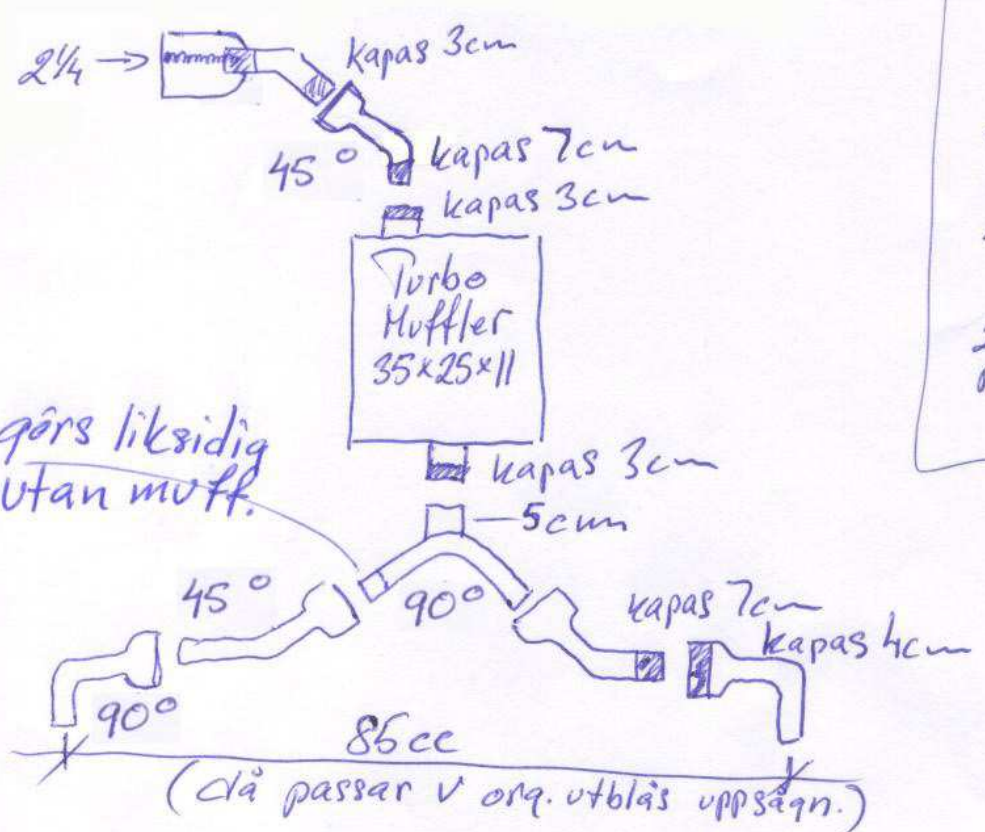 2 1/4 →
kapas 3cm
45°
kapas 7cm
kapas 3cm
Turbo
Muffler
35x25x11
görs liksidig
utan muff.
kapas 3cm
5cm
45°
90°
kapas 7cm
kapas 4cm
90°
85cc
(då passar v org. utblås uppsägn.)